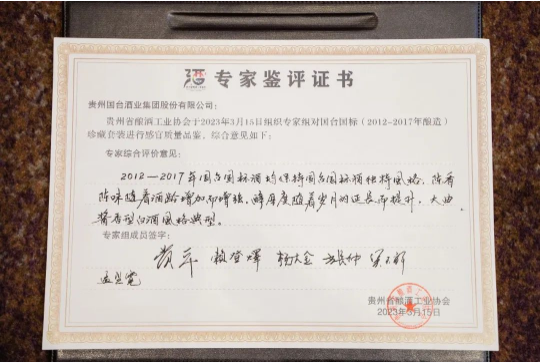 专家鉴评证书
贵州国台酒业集团股份有限公司：
贵州省酿酒工业协会于2023年3月15日组织专家组对国台国标（2012-2017年酿造）
珍藏套装进行感官质量品鉴，综合意见如下：
专家综合评价意见：
2012—2017年国台国标酒均保持国台国标酒独特风格，陈香
陈味随着酒龄增加而增强，醇厚度随着岁月的延长而提升，大曲
酱香型白酒风格典型。
专家组成员签字：
贵州省酿酒工业协会
2023年3月15日